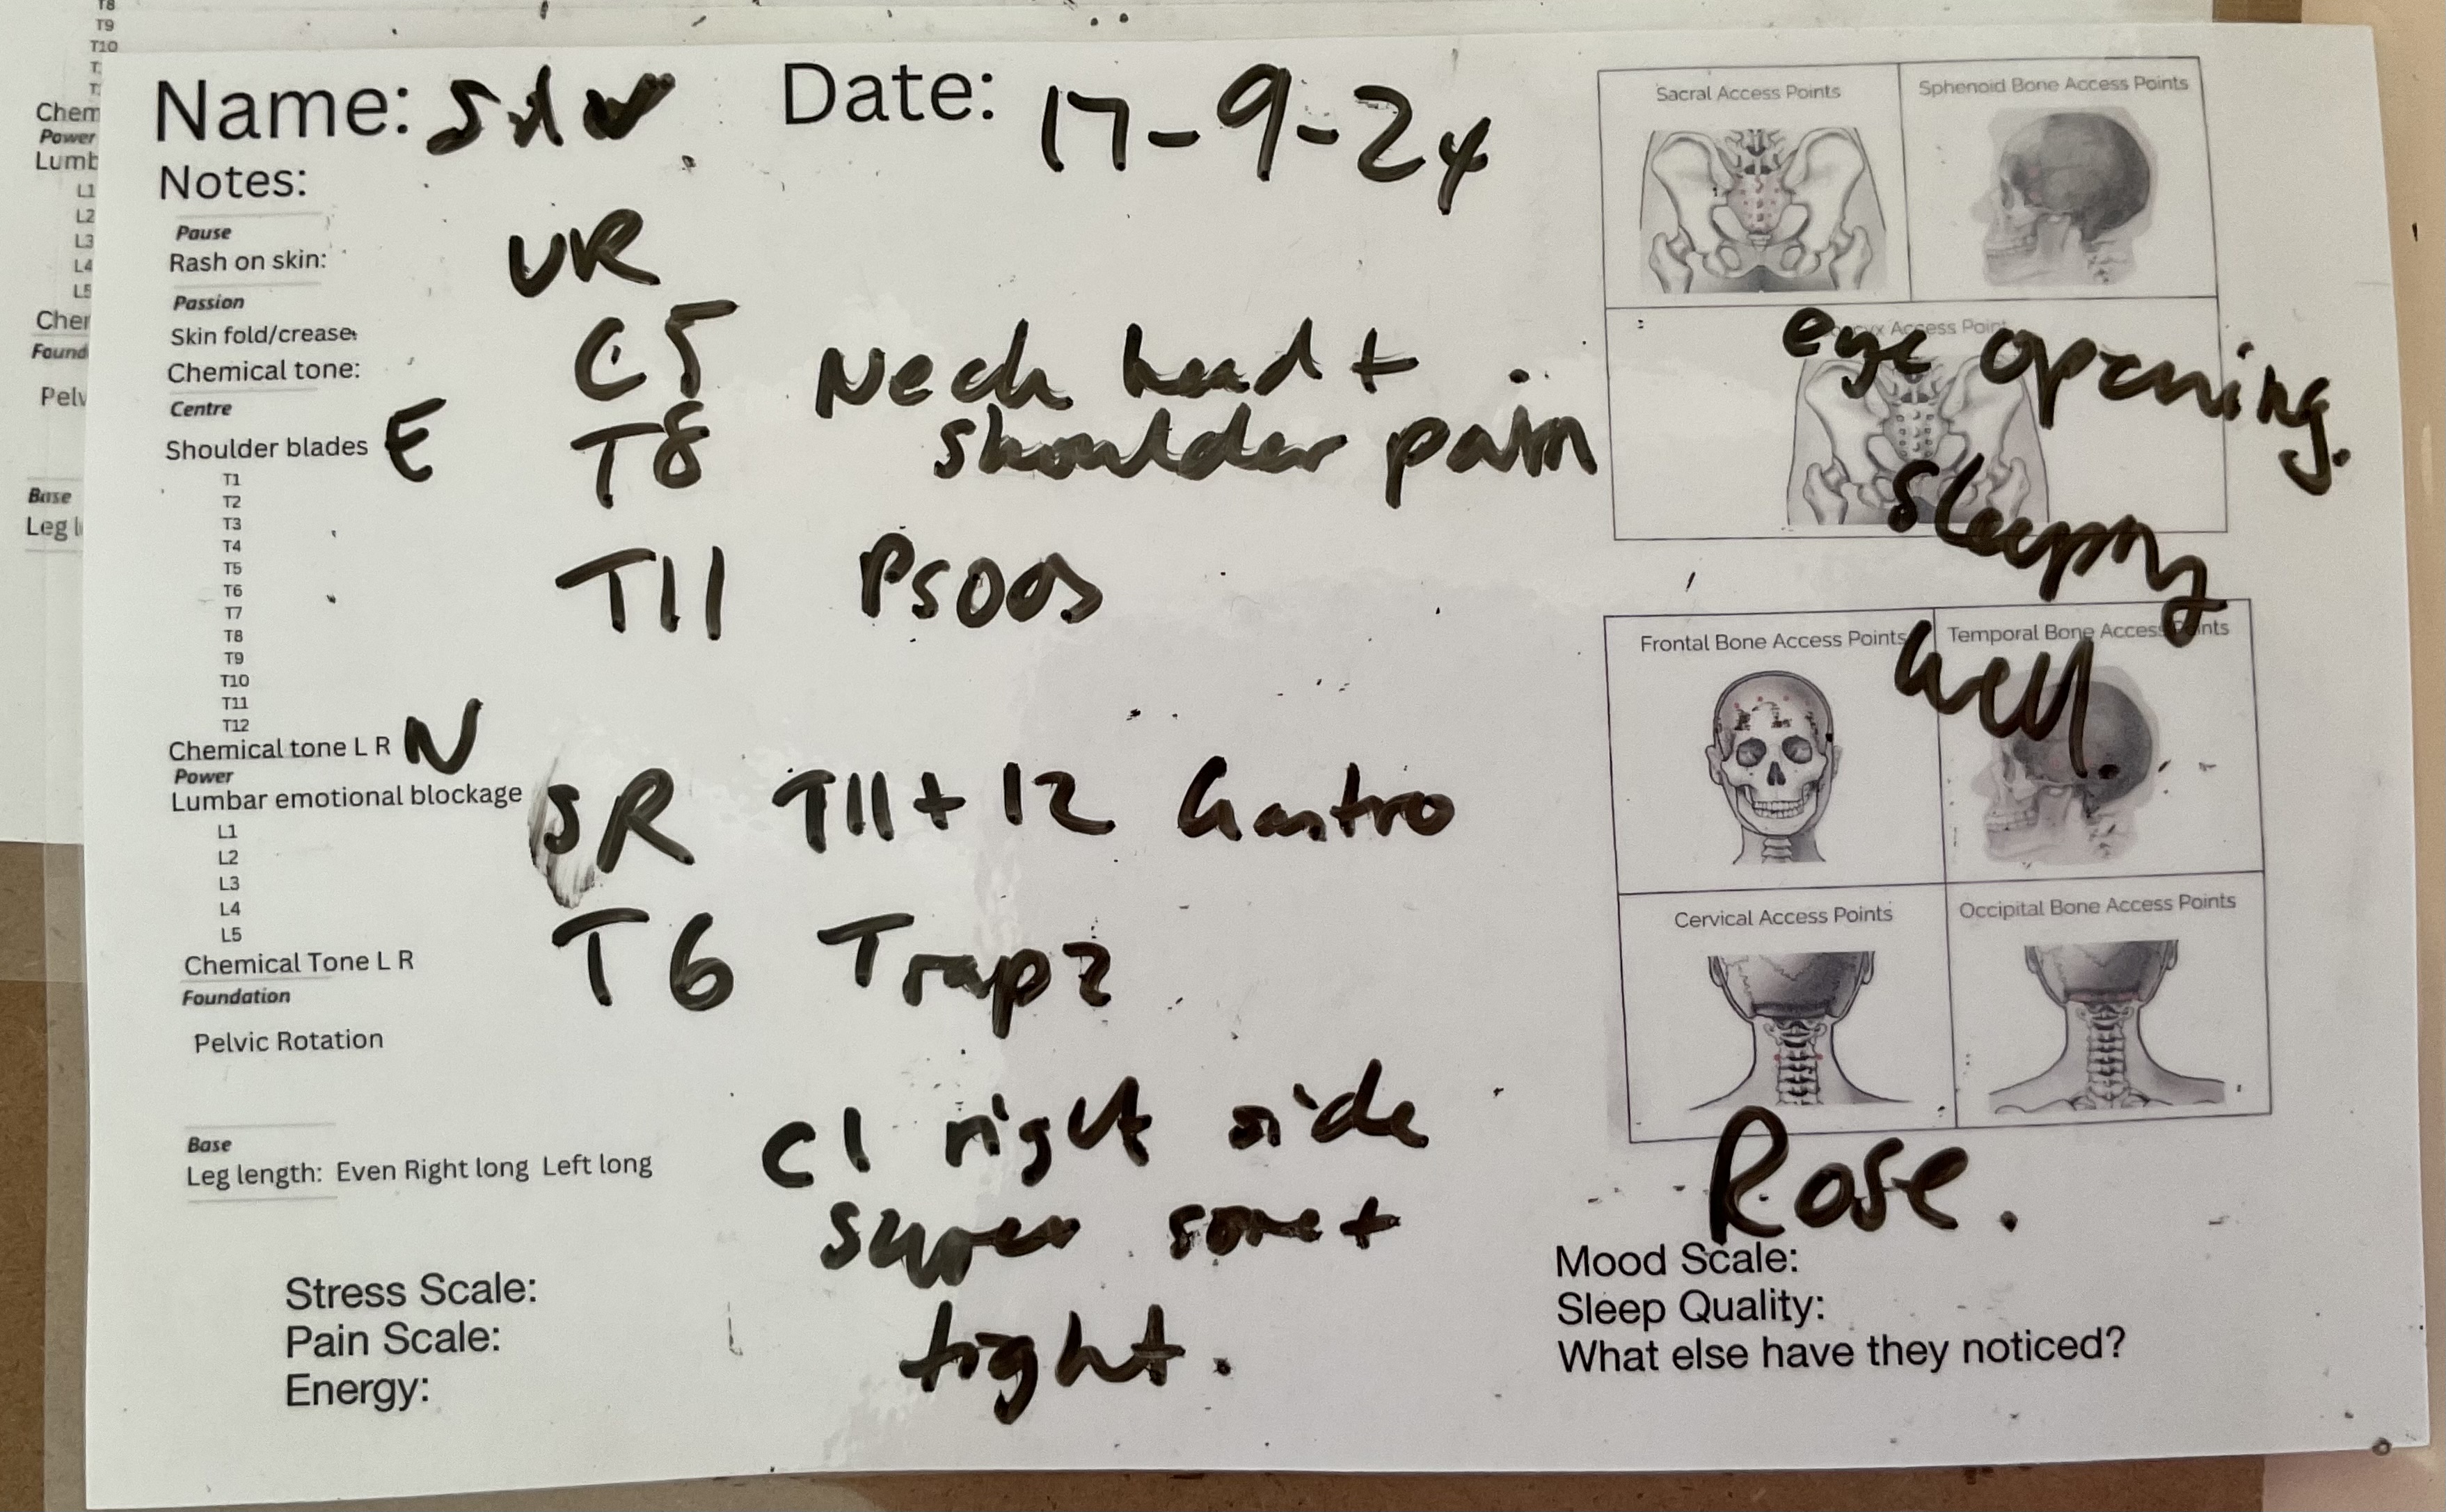 T8
T9
T10
Chem
Power
Lumb
L1
L2
L3
L4
L5
Cher
Found
Pelv
Base
Leg l
Name: Date: 17-9-24
Notes:
Pause
Rash on skin: UR
Passion
Skin fold/crease: C5 Neck head +
Chemical tone:
Centre
Shoulder blades E T8 shoulder pain
T1
T2
T3
T4
T5
T6
T7
T8
T9
T10
T11
T12
T11 Psoas
Chemical tone L R N
Power
Lumbar emotional blockage SR T11 + 12 Gastro
L1
L2
L3
L4
L5
Chemical Tone L R T6 Trapz
Foundation
Pelvic Rotation
Base
Leg length: Even Right long Left long
C1 right side
super sore +
tight.
Stress Scale:
Pain Scale:
Energy:
Sacral Access Points Sphenoid Bone Access Points
Access Point
eye opening.
Sleeping
well
Frontal Bone Access Points Temporal Bone Access Points
Cervical Access Points Occipital Bone Access Points
Rose.
Mood Scale:
Sleep Quality:
What else have they noticed?